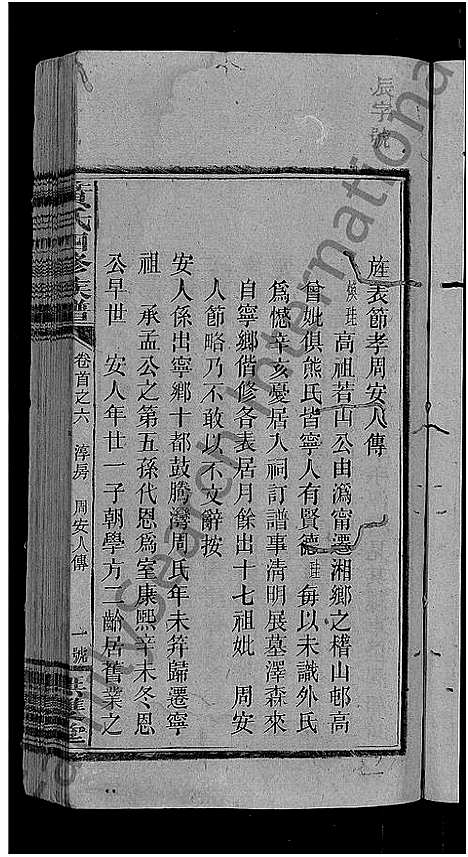 旌表節孝周安人傳
煥珪高祖若山公由溈甯遷湘鄉之稽山邨高
曾妣俱熊氏皆寧人有賢德珪每以未識外氏
為憾辛亥憂居入祠訂譜事清明展墓澤森來
自寧鄉偕修各表居月餘出十七祖妣 周安
人節略乃不敢以不文辭按
安人係出寧鄉十都鼓騰灣周氏年未笄歸遷寧
祖 承孟公之第五孫代恩為室康熙辛未冬恩
公早世 安人年廿一子朝學方二齡居舊業之
黃氏四修族譜
卷首之六 淳房 周安人傳
一號
堂
辰字號
MySearch International